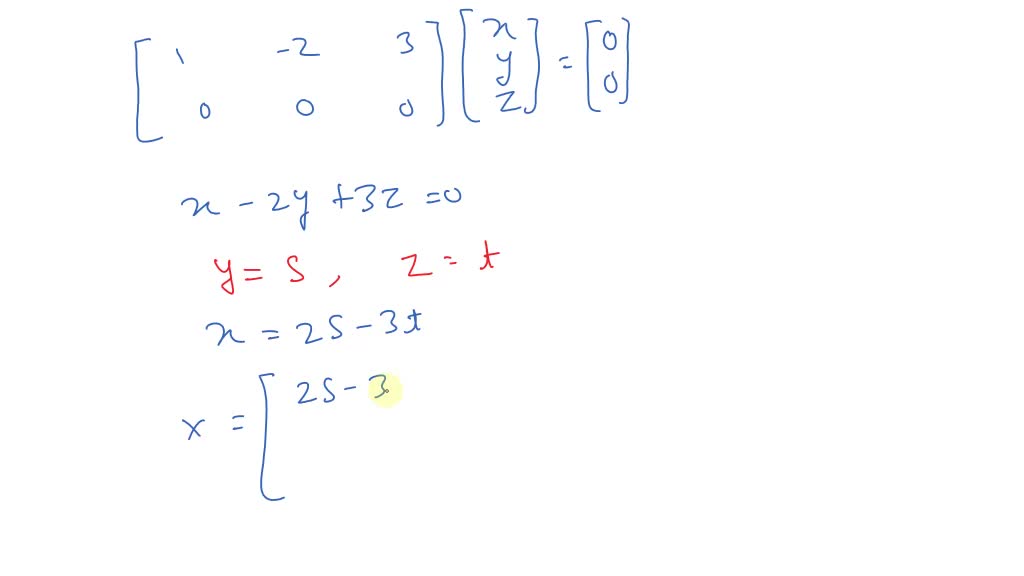 [ 1 -2 3 ] [ x ] = [ 0 ]
[ 0 0 0 ] [ y ] [ 0 ]
[ z ]
x - 2y + 3z = 0
y = s, z = t
x = 2s - 3t
x = [ 2s - 3